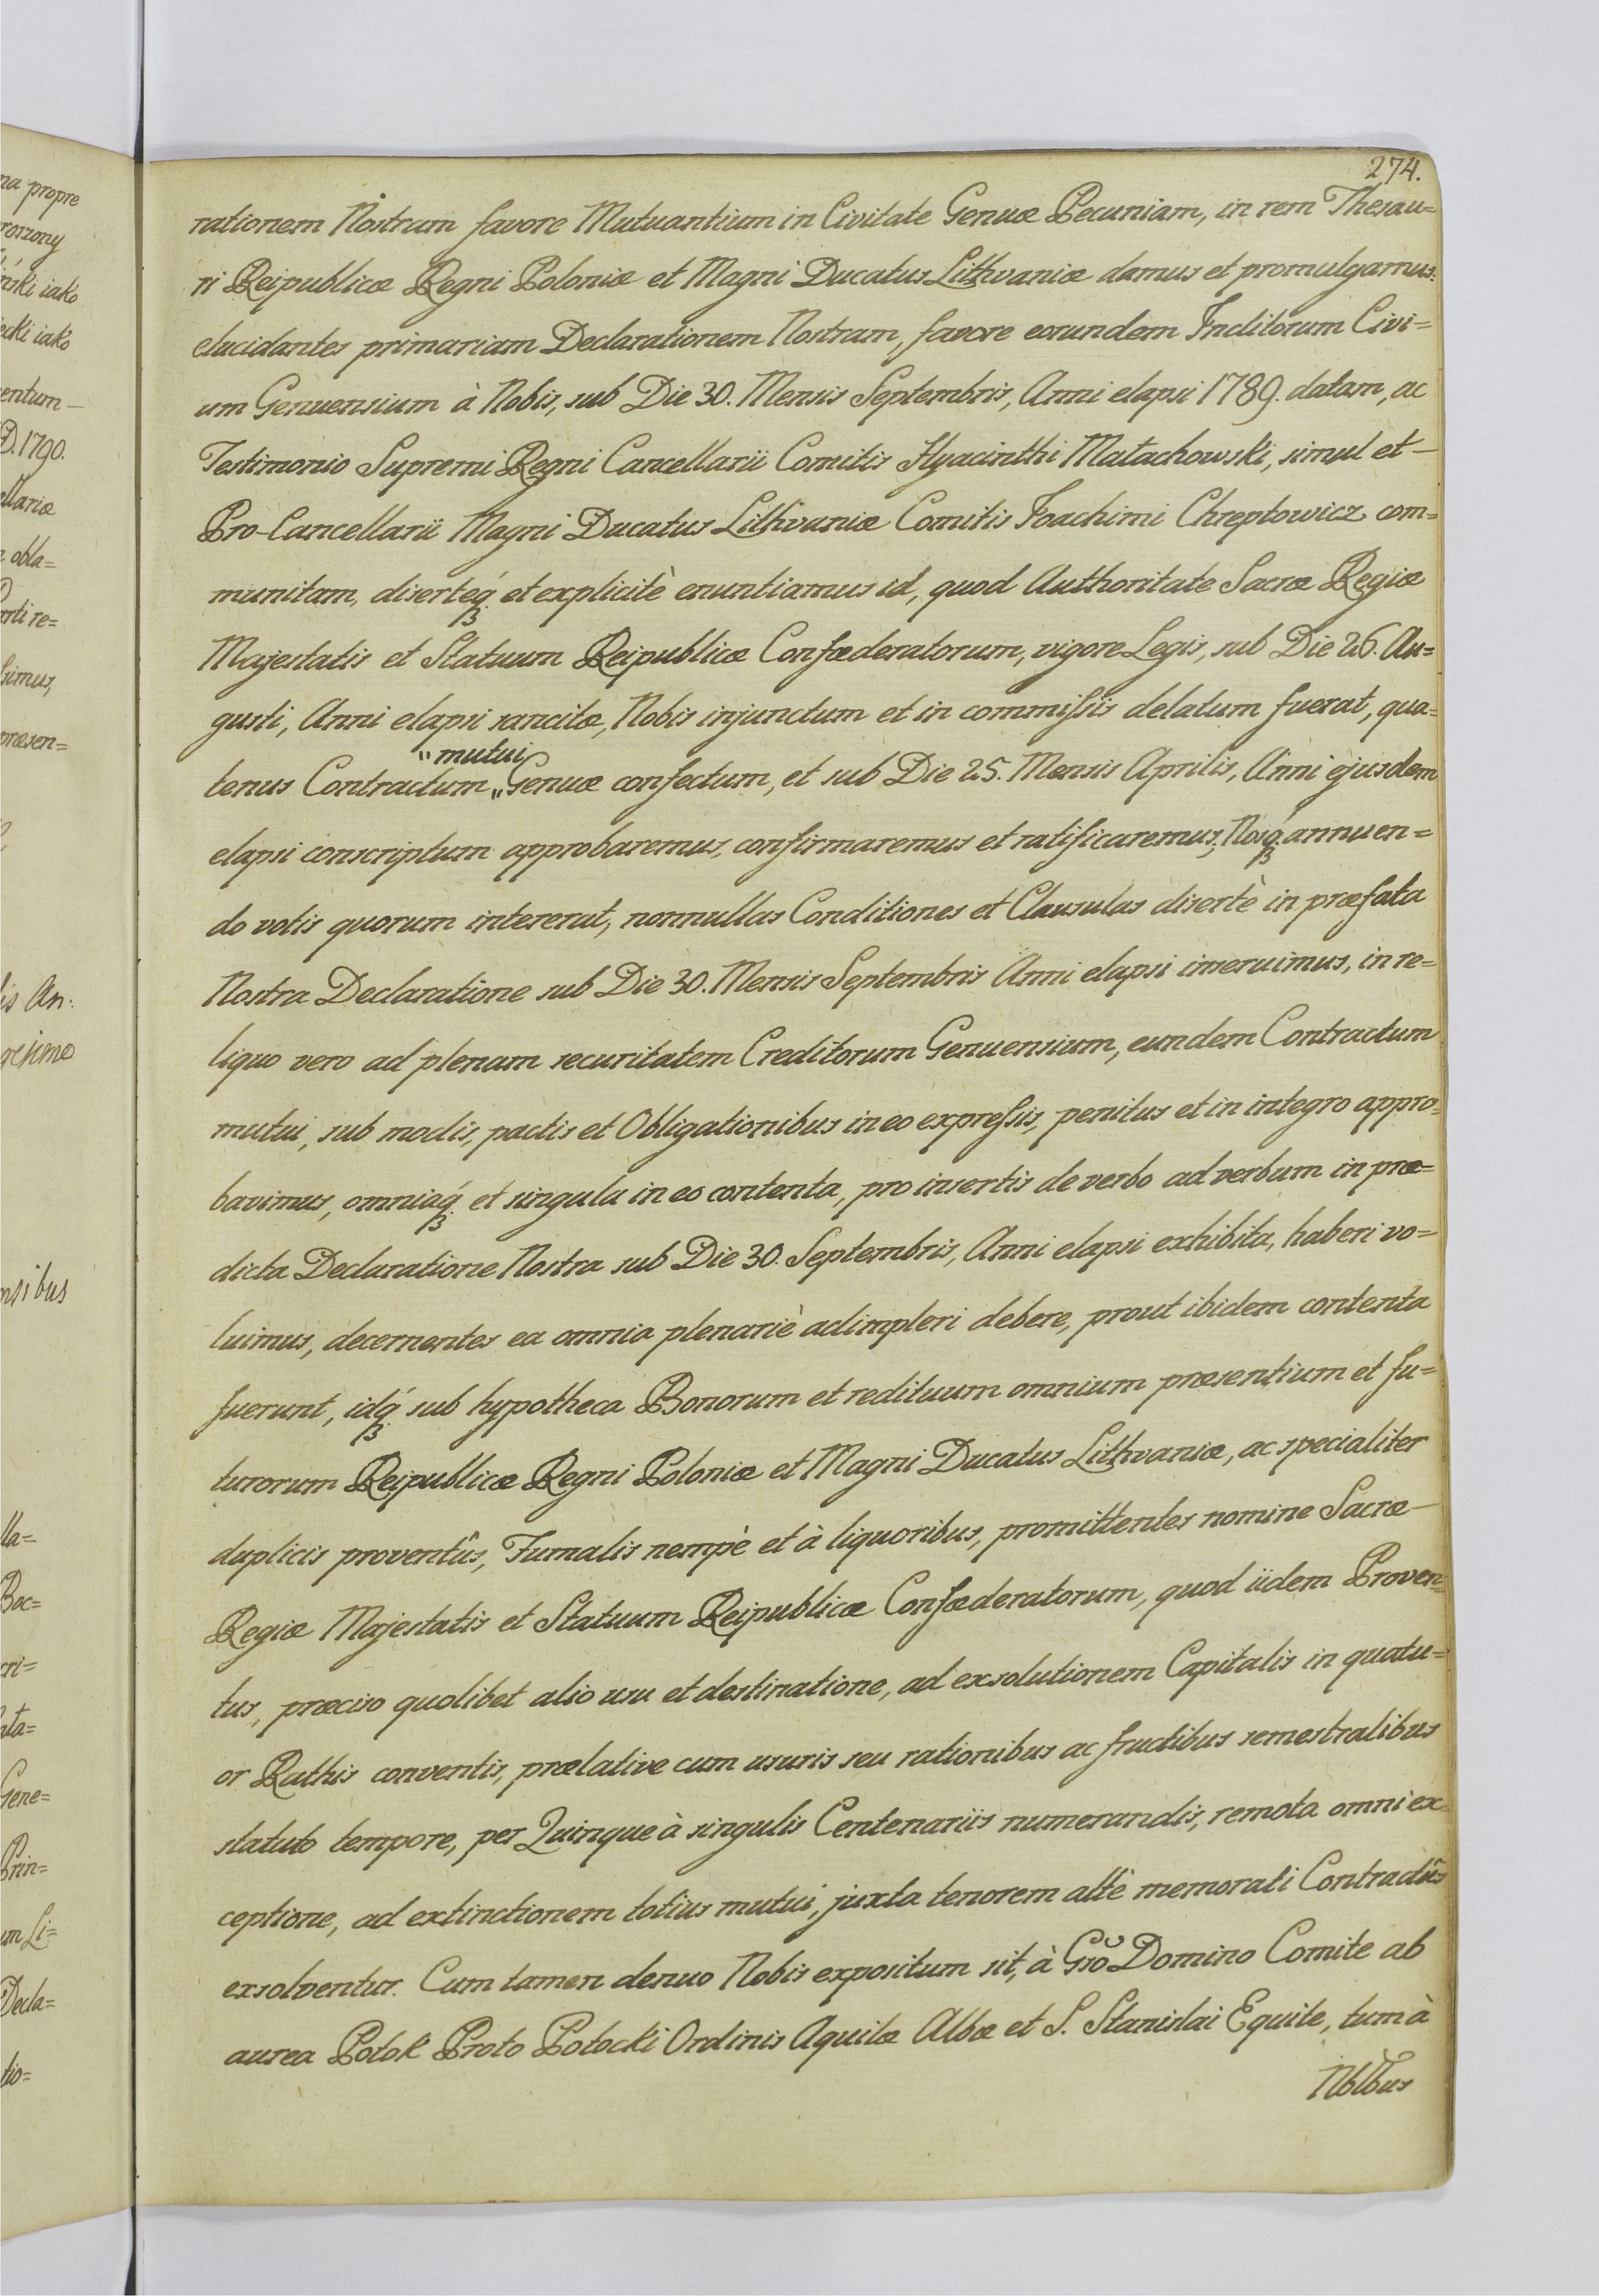 274.
rationem Nostram favore Mutuantium in Civitate Genuæ Pecuniam, in rem Thesau=
ri Reipublicæ Regni Poloniæ et Magni Ducatus Lithvaniæ damus et promulgamus:
elucidantes primariam Declarationem Nostram, favore eorundem Inclitorum Civi=
um Genuensium à Nobis, sub Die 30. Mensis Septembris, Anni elapsi 1789. datam, ac
Testimonio Supremi Regni Cancellarii Comitis Hyacinthi Małachowski, simul et —
Pro-Cancellarii Magni Ducatus Lithvaniæ Comitis Joachimi Chreptowicz com=
munitam, disertéq₃ et explicitè enuntiamus id, quod Authoritate Sacræ Regiæ
Majestatis et Statuum Reipublicæ Confœderatorum, vigore Legis, sub Die 26. Au=
gusti, Anni elapsi sancitæ, Nobis injunctum et in commiſsis delatum fuerat, qua=
"mutui
tenus Contractum „Genuæ confectum, et sub Die 25. Mensis Aprilis, Anni ejusdem
elapsi conscriptum approbaremus, confirmaremus et ratificaremus; Nosq́₃ annuen=
do votis quorum intererat, nonnullas Conditiones et Clausulas disertè in præfata
Nostra Declaratione sub Die 30. Mensis Septembris Anni elapsi inseruimus, in re=
liquo vero ad plenam securitatem Creditorum Genuensium, eundem Contractum
mutui, sub modis, pactis et Obligationibus in eo expreſsis, penitus et in integro appro=
bavimus, omniaq́₃ et singula in eo contenta, pro insertis de verbo ad verbum in præ=
dicta Declaratione Nostra sub Die 30. Septembris, Anni elapsi exhibita, haberi vo=
luimus, decernentes ea omnia plenariè adimpleri debere, prout ibidem contenta
fuerunt, idq́₃ sub hypotheca Bonorum et redituum omnium præsentium et fu=
turorum Reipublicæ Regni Poloniæ et Magni Ducatus Lithvaniæ, ac specialiter
duplicis proventûs, Fumalis nempè et à liquoribus, promittentes nomine Sacræ —
Regiæ Majestatis et Statuum Reipublicæ Confœderatorum, quod iidem Proven=
tus, præciso quolibet alio usu et destinatione, ad exsolutionem Capitalis in quatu=
or Rathis conventis, prælative cum usuris seu rationibus ac fructibus semestralibus
statuto tempore, per Quinque à singulis Centenariis numerandis, remota omni ex=
ceptione, ad extinctionem totius mutui, juxta tenorem altè memorati Contractûs
exsolventur. Cum tamen denuo Nobis expositum sit, à Gsõ Domino Comite ab
aurea Potok Proto Potocki Ordinis Aquilæ Albæ et S. Stanislai Equite, tum à
Nb̃lbus